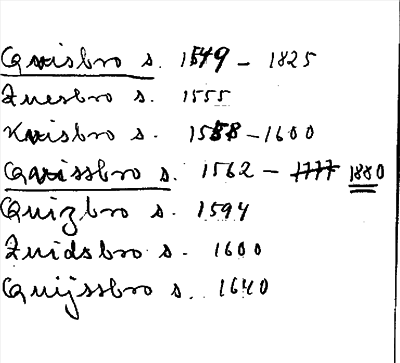 Qvisbro s. 1549 - 1825
Zuesbro s. 1555
Kvisbro s. 1558 - 1600
Qvissbro s. 1562 - 1777 1880
Quizbro s. 1594
Zuidsbro s. 1600
Quijssbro s. 1640